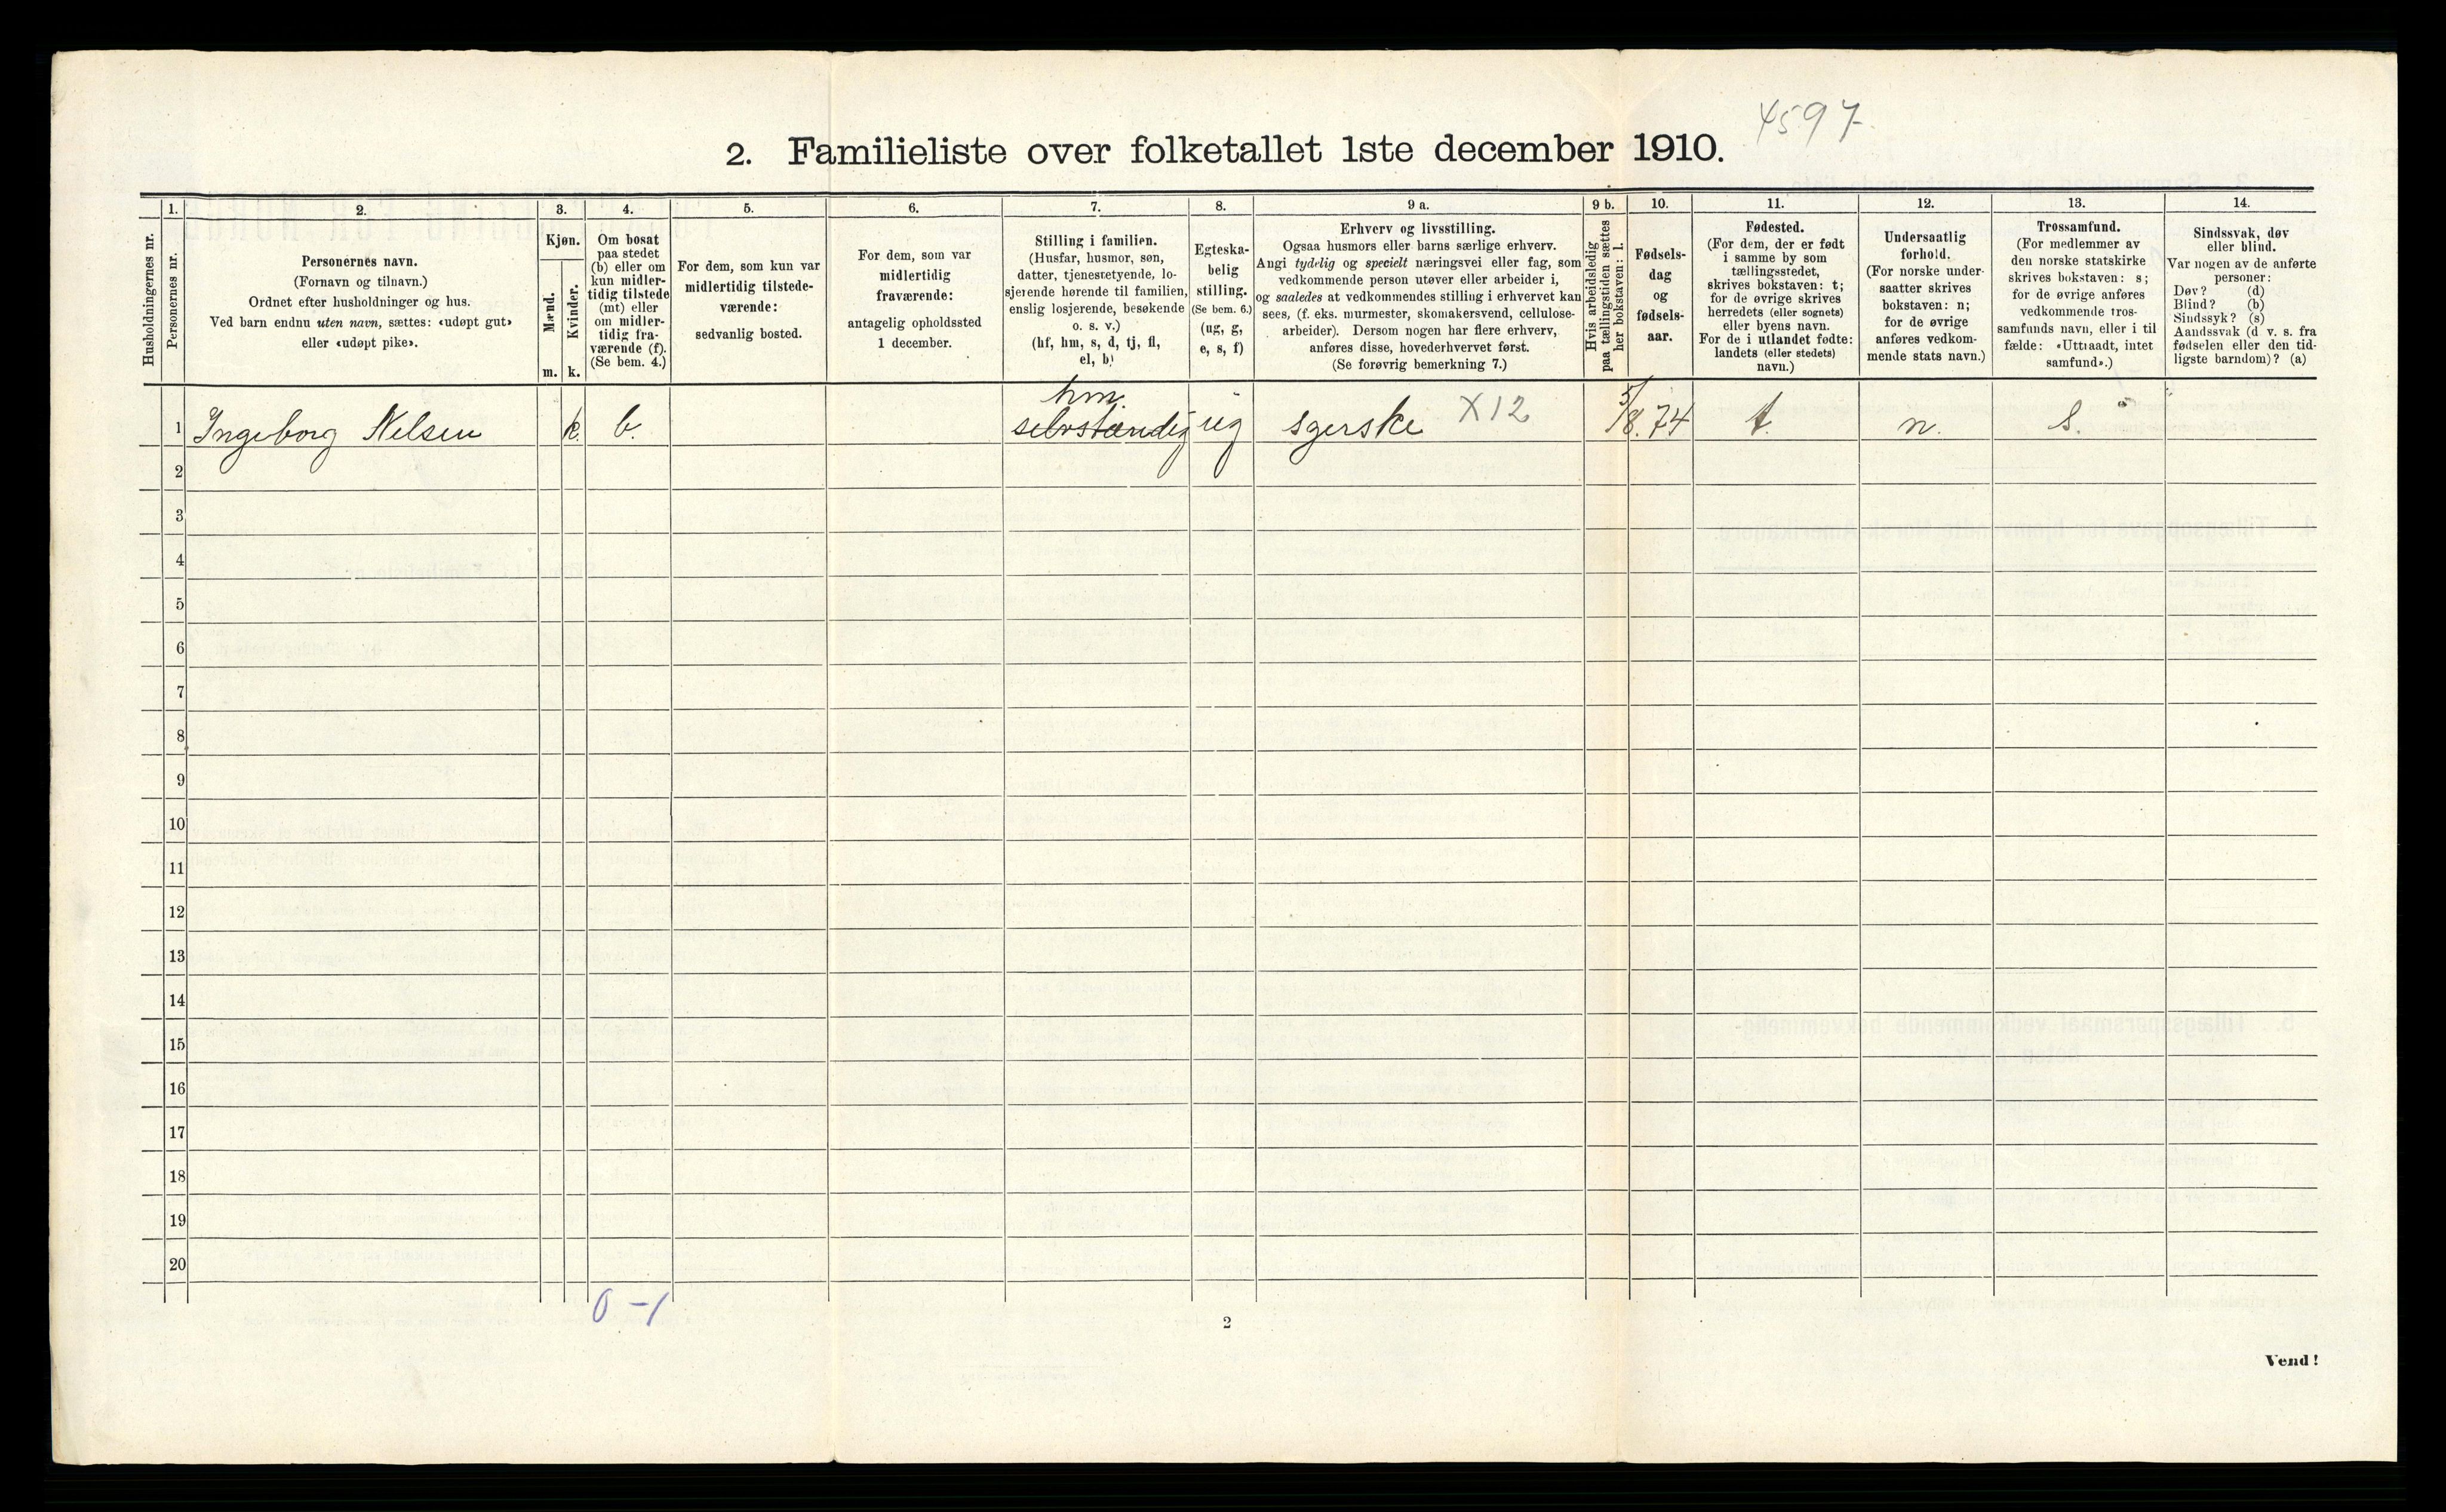 4597
2. Familieliste over folketallet 1ste december 1910.
Husholdningernes nr.
1.
Personernes nr.
2.
Personernes navn.
(Fornavn og tilnavn.)
Ordnet efter husholdninger og hus.
Ved barn endnu uten navn, sættes: «udøpt gut»
eller «udøpt pike».
3.
Kjøn.
Mænd.
m.
Kvinder.
k.
4.
Om bosat
paa stedet
(b) eller om
kun midler-
tidig tilstede
(mt) eller
om midler-
tidig fra-
værende (f).
(Se bem. 4.)
5.
For dem, som kun var
midlertidig tilstede-
værende:
sedvanlig bosted.
6.
For dem, som var
midlertidig
fraværende:
antagelig opholdssted
1 december.
7.
Stilling i familien.
(Husfar, husmor, søn,
datter, tjenestetyende, lo-
sjerende hørende til familien,
enslig losjerende, besøkende
o. s. v.)
(hf, hm, s, d, tj, fl,
el, b)
8.
Egteska-
belig
stilling.
(Se bem. 6.)
(ug, g,
e, s, f)
9 a.
Erhverv og livsstilling.
Ogsaa husmors eller barns særlige erhverv.
Angi tydelig og specielt næringsvei eller fag, som
vedkommende person utøver eller arbeider i,
og saaledes at vedkommendes stilling i erhvervet kan
sees, (f. eks. murmester, skomakersvend, cellulose-
arbeider). Dersom nogen har flere erhverv,
anføres disse, hovederhvervet først.
(Se forøvrig bemerkning 7.)
9 b.
Hvis arbeidsledig
paa tællingstiden sættes
her bokstaven: l.
10.
Fødsels-
dag
og
fødsels-
aar.
11.
Fødested.
(For dem, der er født
i samme by som
tællingsstedet,
skrives bokstaven: t;
for de øvrige skrives
herredets (eller sognets)
eller byens navn.
For de i utlandet fødte:
landets (eller stedets)
navn.)
12.
Undersaatlig
forhold.
(For norske under-
saatter skrives
bokstaven: n;
for de øvrige
anføres vedkom-
mende stats navn.)
13.
Trossamfund.
(For medlemmer av
den norske statskirke
skrives bokstaven: s;
for de øvrige anføres
vedkommende tros-
samfunds navn, eller i til
fælde: «Uttraadt, intet
samfund».)
14.
Sindssvak, døv
eller blind.
Var nogen av de anførte
personer:
Døv? (d)
Blind? (b)
Sindssyk? (s)
Aandssvak (d v. s. fra
fødselen eller den tid-
ligste barndom)? (a)
hm.
1 Ingeborg Nelsen k. b. selvstændig ug sgerske X12 5/8.74 t. n. s.
2
3
4
5
6
7
8
9
10
11
12
13
14
15
16
17
18
19
20
0-1
2
Vend!